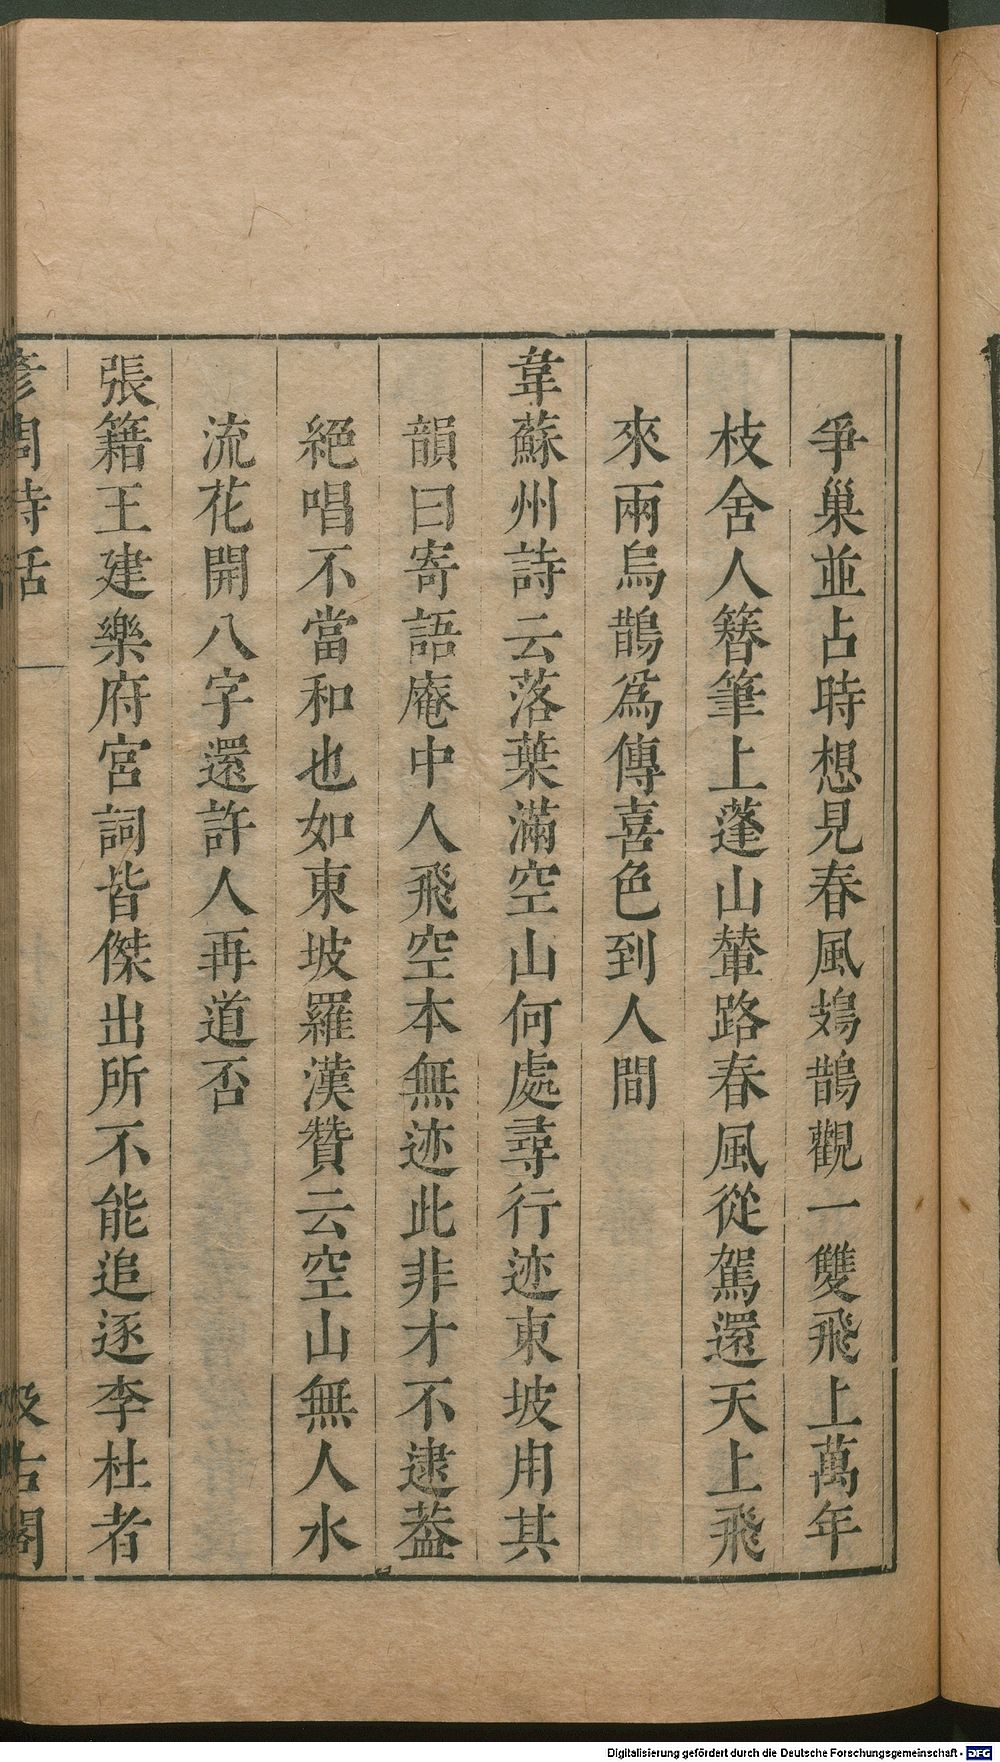 爭巢並占時想見春風鳷鵲觀一雙飛上萬年
枝舍人簪筆上蓬山輦路春風從駕還天上飛
來兩烏鵲爲傳喜色到人間
韋蘇州詩云落葉滿空山何處尋行迹東坡用其
韻曰寄語庵中人飛空本無迹此非才不逮葢
絕唱不當和也如東坡羅漢贊云空山無人水
流花開八字還許人再道否
張籍王建樂府宮詞皆傑出所不能追逐李杜者
彥周詩話
汲古閣
Digitalisierung gefördert durch die Deutsche Forschungsgemeinschaft - DFG